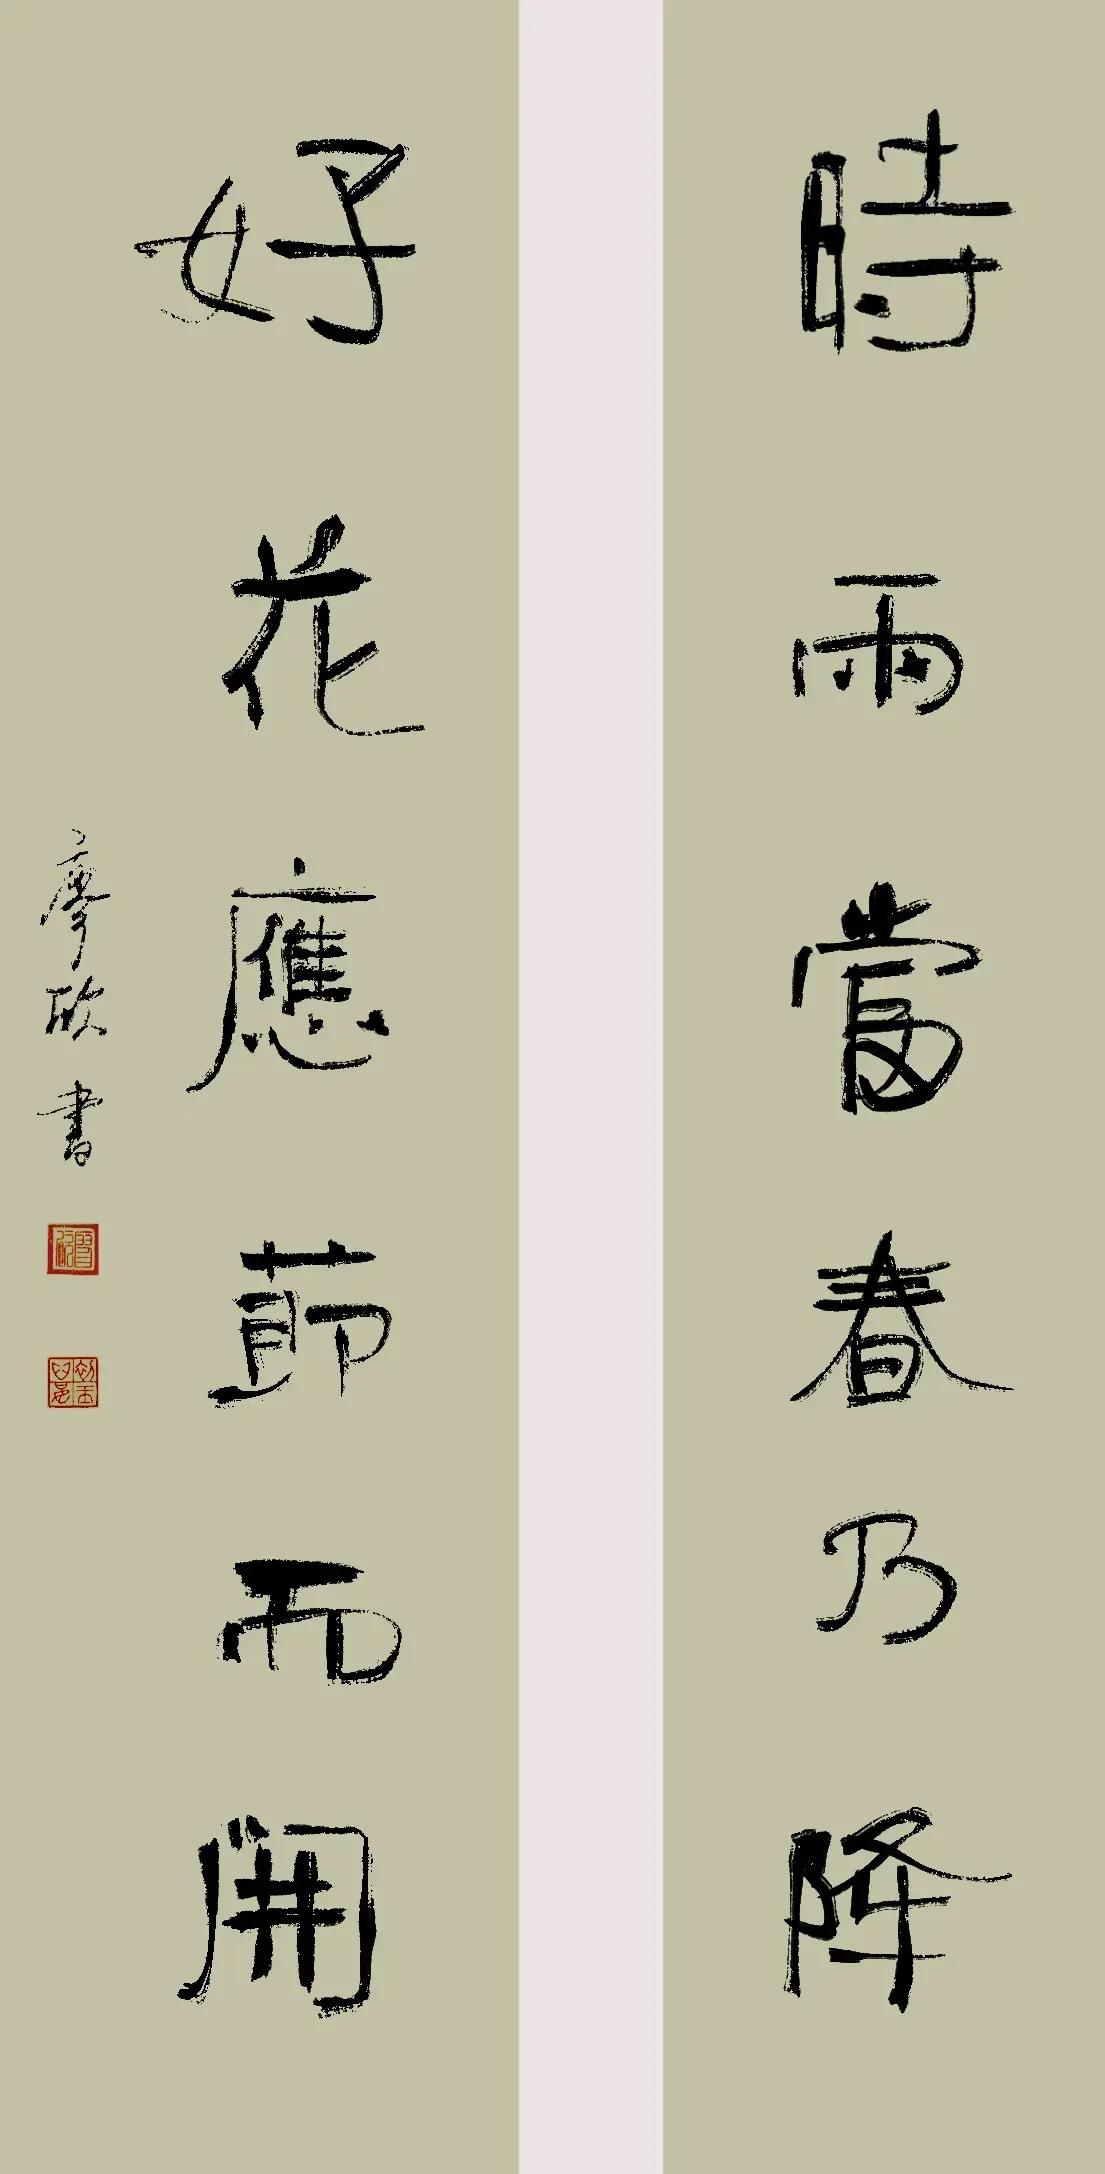 時雨當春乃降
好花應節而開
廖欣書